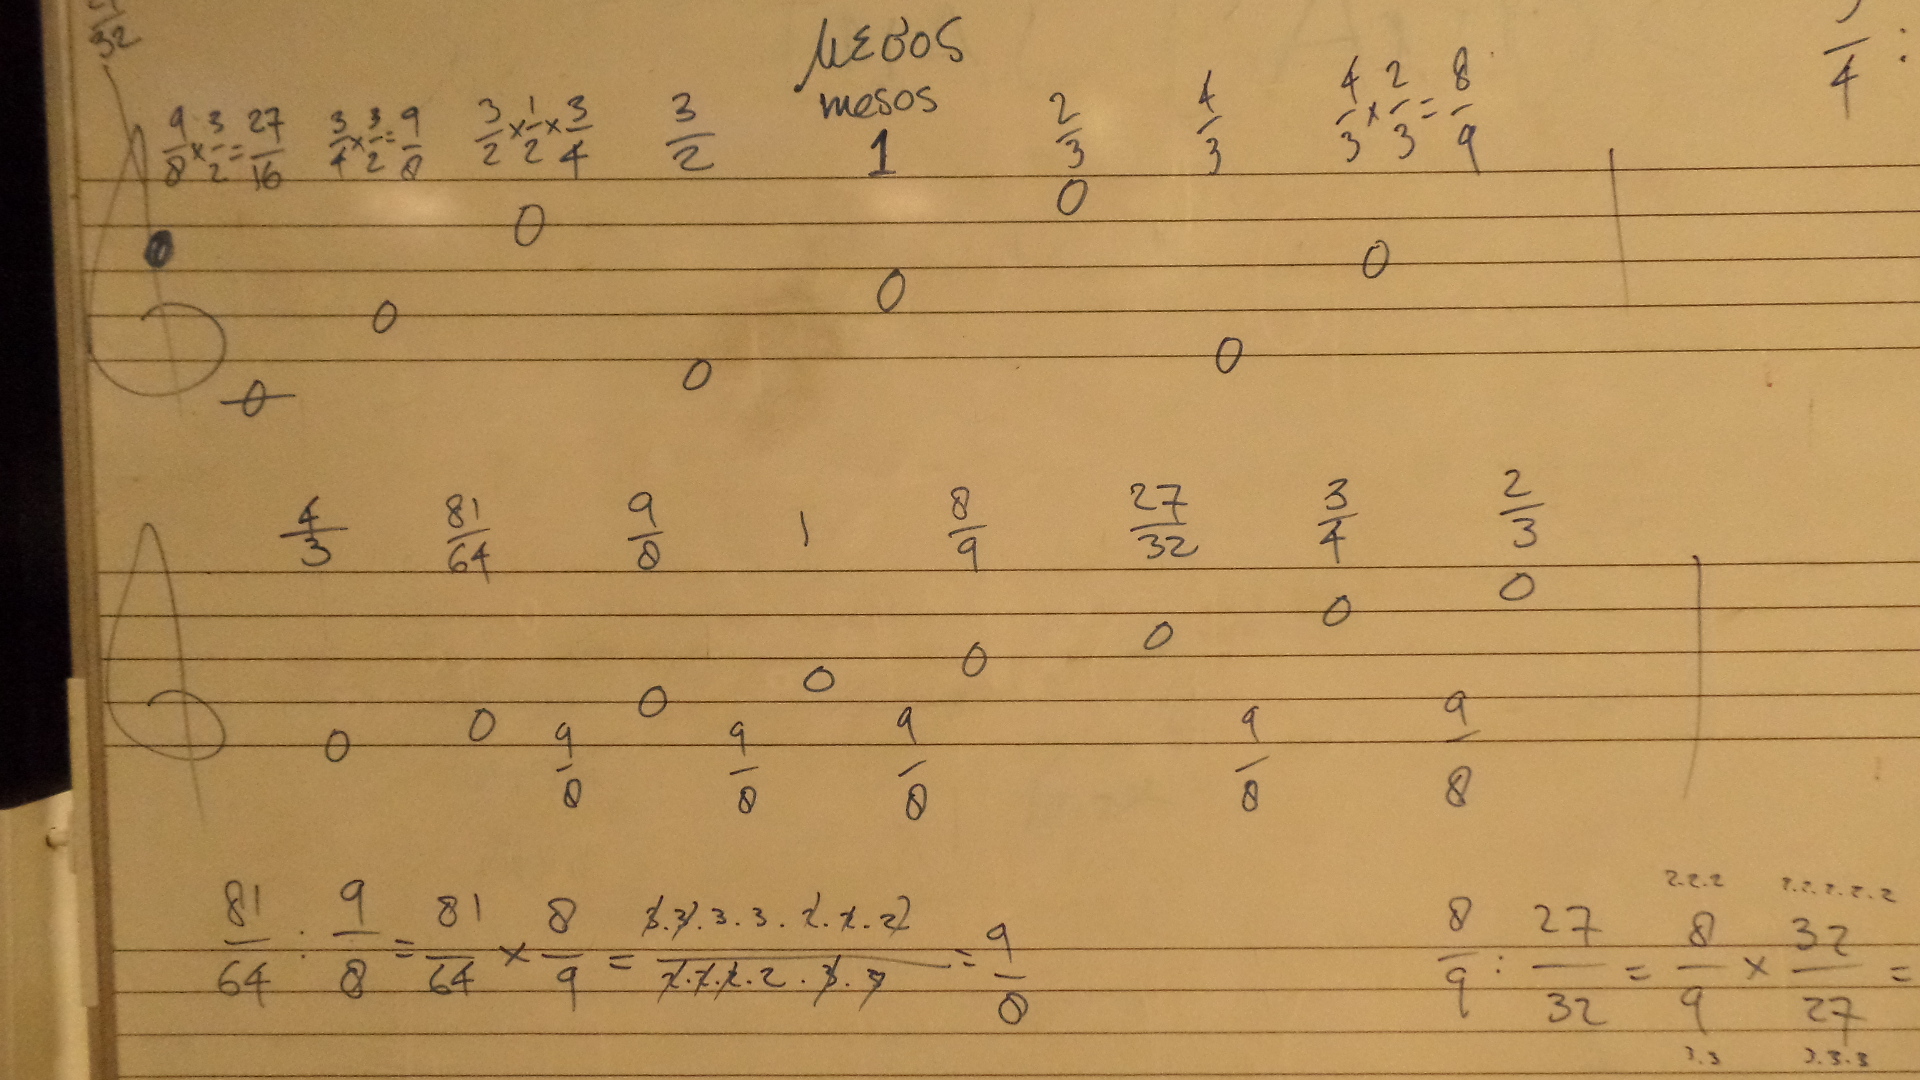 μεσος
mesos
9/8 × 3/2 = 27/16 3/4 × 3/2 = 9/8 3/2 × 1/2 × 3/4 3/2 1 2/3 4/3 4/3 × 2/3 = 8/9
4/3 81/64 9/8 1 8/9 27/32 3/4 2/3
9/8 9/8 9/8 9/8 9/8
81/64 : 9/8 = 81/64 × 8/9 = 3.3.3.3.2.2.2/2.2.2.2.3.3 = 9/8
2.2.2 2.2.2.2.2
8/9 : 27/32 = 8/9 × 32/27 =
3.3 3.3.3